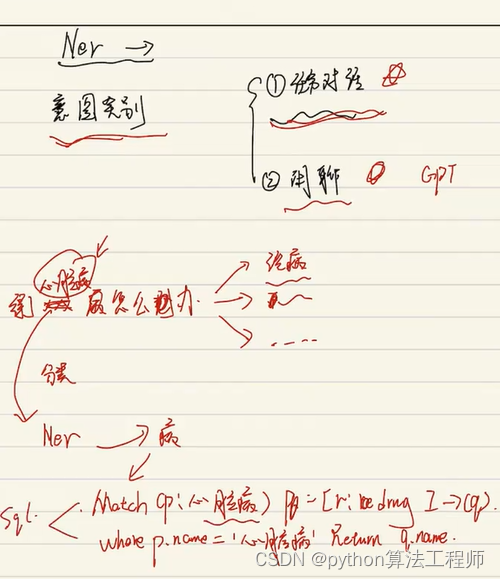 Ner →
意图类别
① 任务对话
② 闲聊 GPT
心脏病
得 病怎么办
治病
....
分类
Ner → 病
Sql. Match (p:心脏病) - [r: ] → (q).
where p.name = '心脏病' Return q.name.
CSDN @python算法工程师